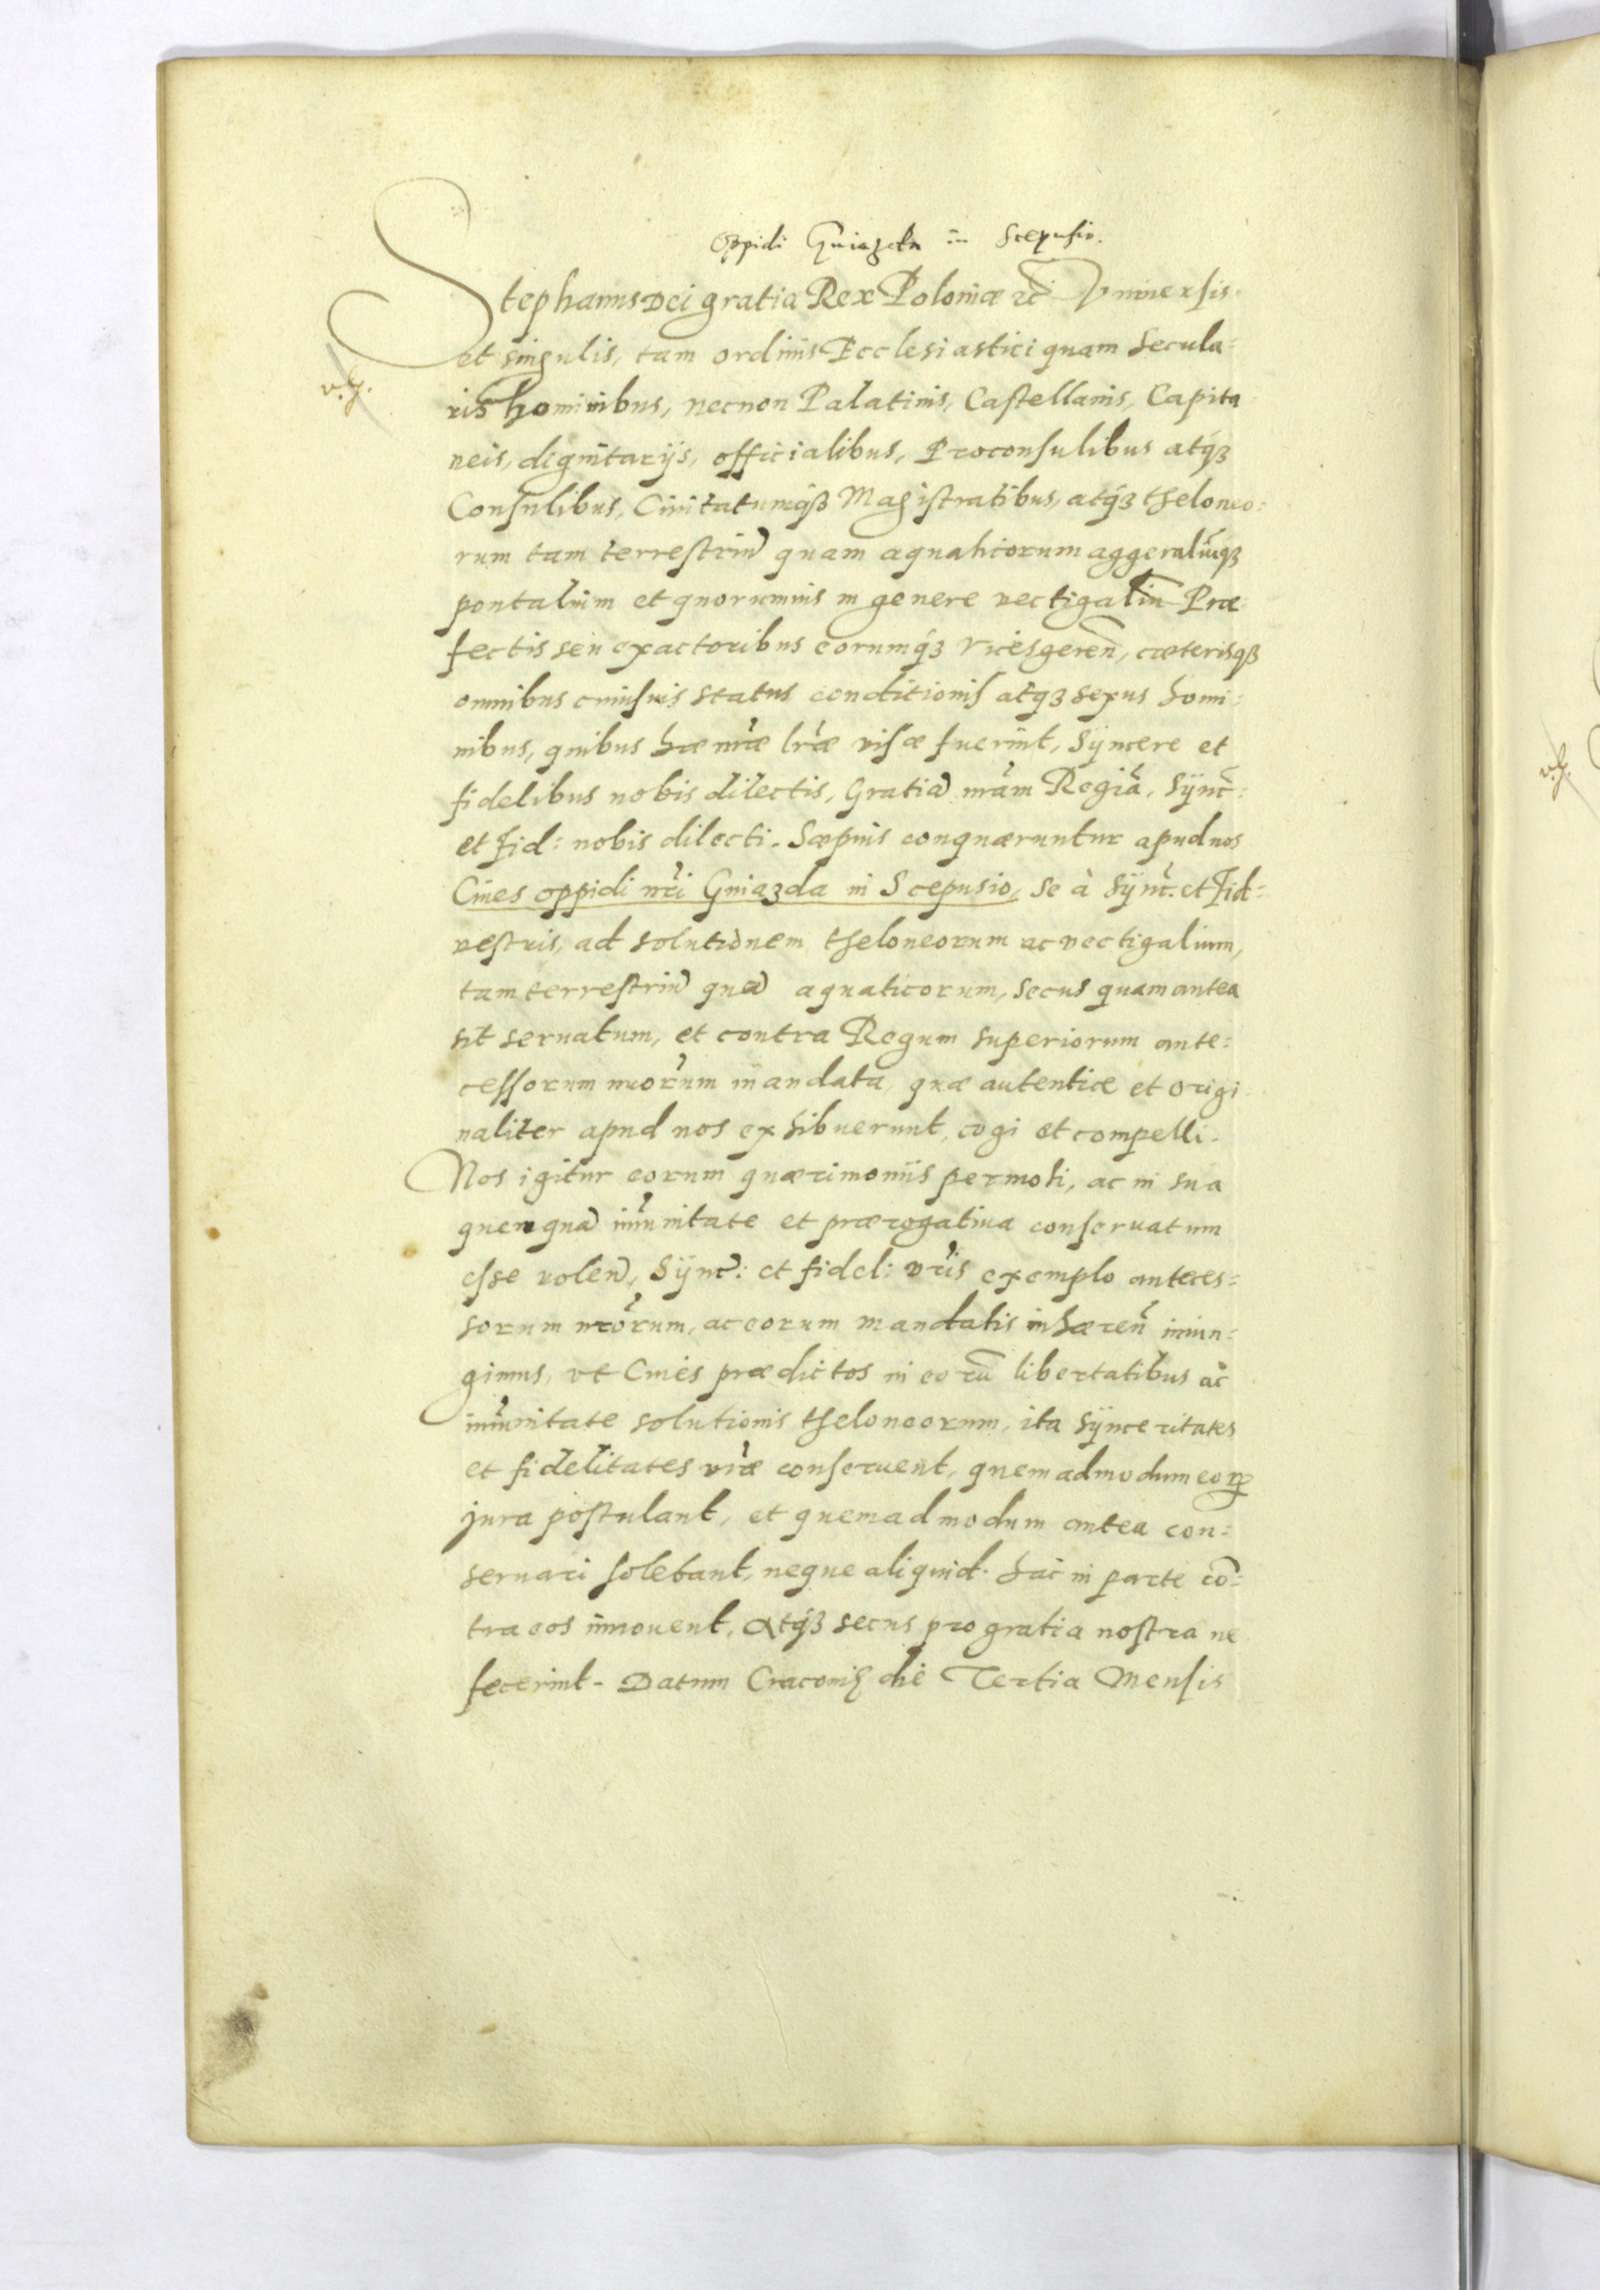 Oppidi Gniazda in Scepusio.
Stephanus Dei gratia Rex Poloniæ etc Vniuersis
et singulis, tam ordinis Ecclesiastici quam Secula-
v.g.
ris hominibus, necnon Palatinis, Castellanis, Capita
neis, dignitarijs, officialibus, Proconsulibus atq́ꝫ
Consulibus, Ciuitatumq́ꝫ Magistratibus, atq́ꝫ theloneo:
rum tam terrestriū quam aquaticorum aggeraliūq́ꝫ
pontalium et quorumuis in genere vectigaliū Præ
fectis seu exactoribus eorumq́ꝫ vicesgereñ, cæterisq́ꝫ
omnibus cuiusuis status conditionis atq́ꝫ sexus homi:
nibus, quibus hæ nr̃æ lr̃æ visæ fuerint, Syncere et
fidelibus nobis dilectis, Gratiā nr̃am Regiã, Sÿnc̃:
et Fid: nobis dilecti. Sæpius conquæruntur apud nos
Ciues oppidi nr̃i Gniazda in Scepusio, se à Sÿnc̃. et Fid:
vestris, ad solutionem theloneorum ac vectigalium,
tam terrestriū quā aquaticorum, secus quam antea
sit seruatum, et contra Regum superiorum ante:
cessorum nr̃orum mandata, quæ autentice et origi
naliter apud nos exhibuerunt, cogi et compelli.
Nos igitur eorum quærimoniis permoti, ac in sua
quenquā im̃unitate et prærogatiua conseruatum
esse voleñ, Sÿnc̃: et fidel: vr̃is exemplo anteces=
sorum nr̃orum, ac eorum mandatis inhæreñ iniun:
gimus, vt Ciues prædictos in eorū libertatibus ac
im̃unitate solutionis theloneorum, ita Sÿnceritates
et fidelitates vr̃æ conseruent, quemadmodum eoꝝ
jura postulant, et quemadmodum antea con:
seruari solebant, neque aliquid hac in parte cō:
tra eos innouent, Atq́ꝫ secus pro gratia nostra ne
fecerint. Datum Cracouiæ die Tertia Mensis